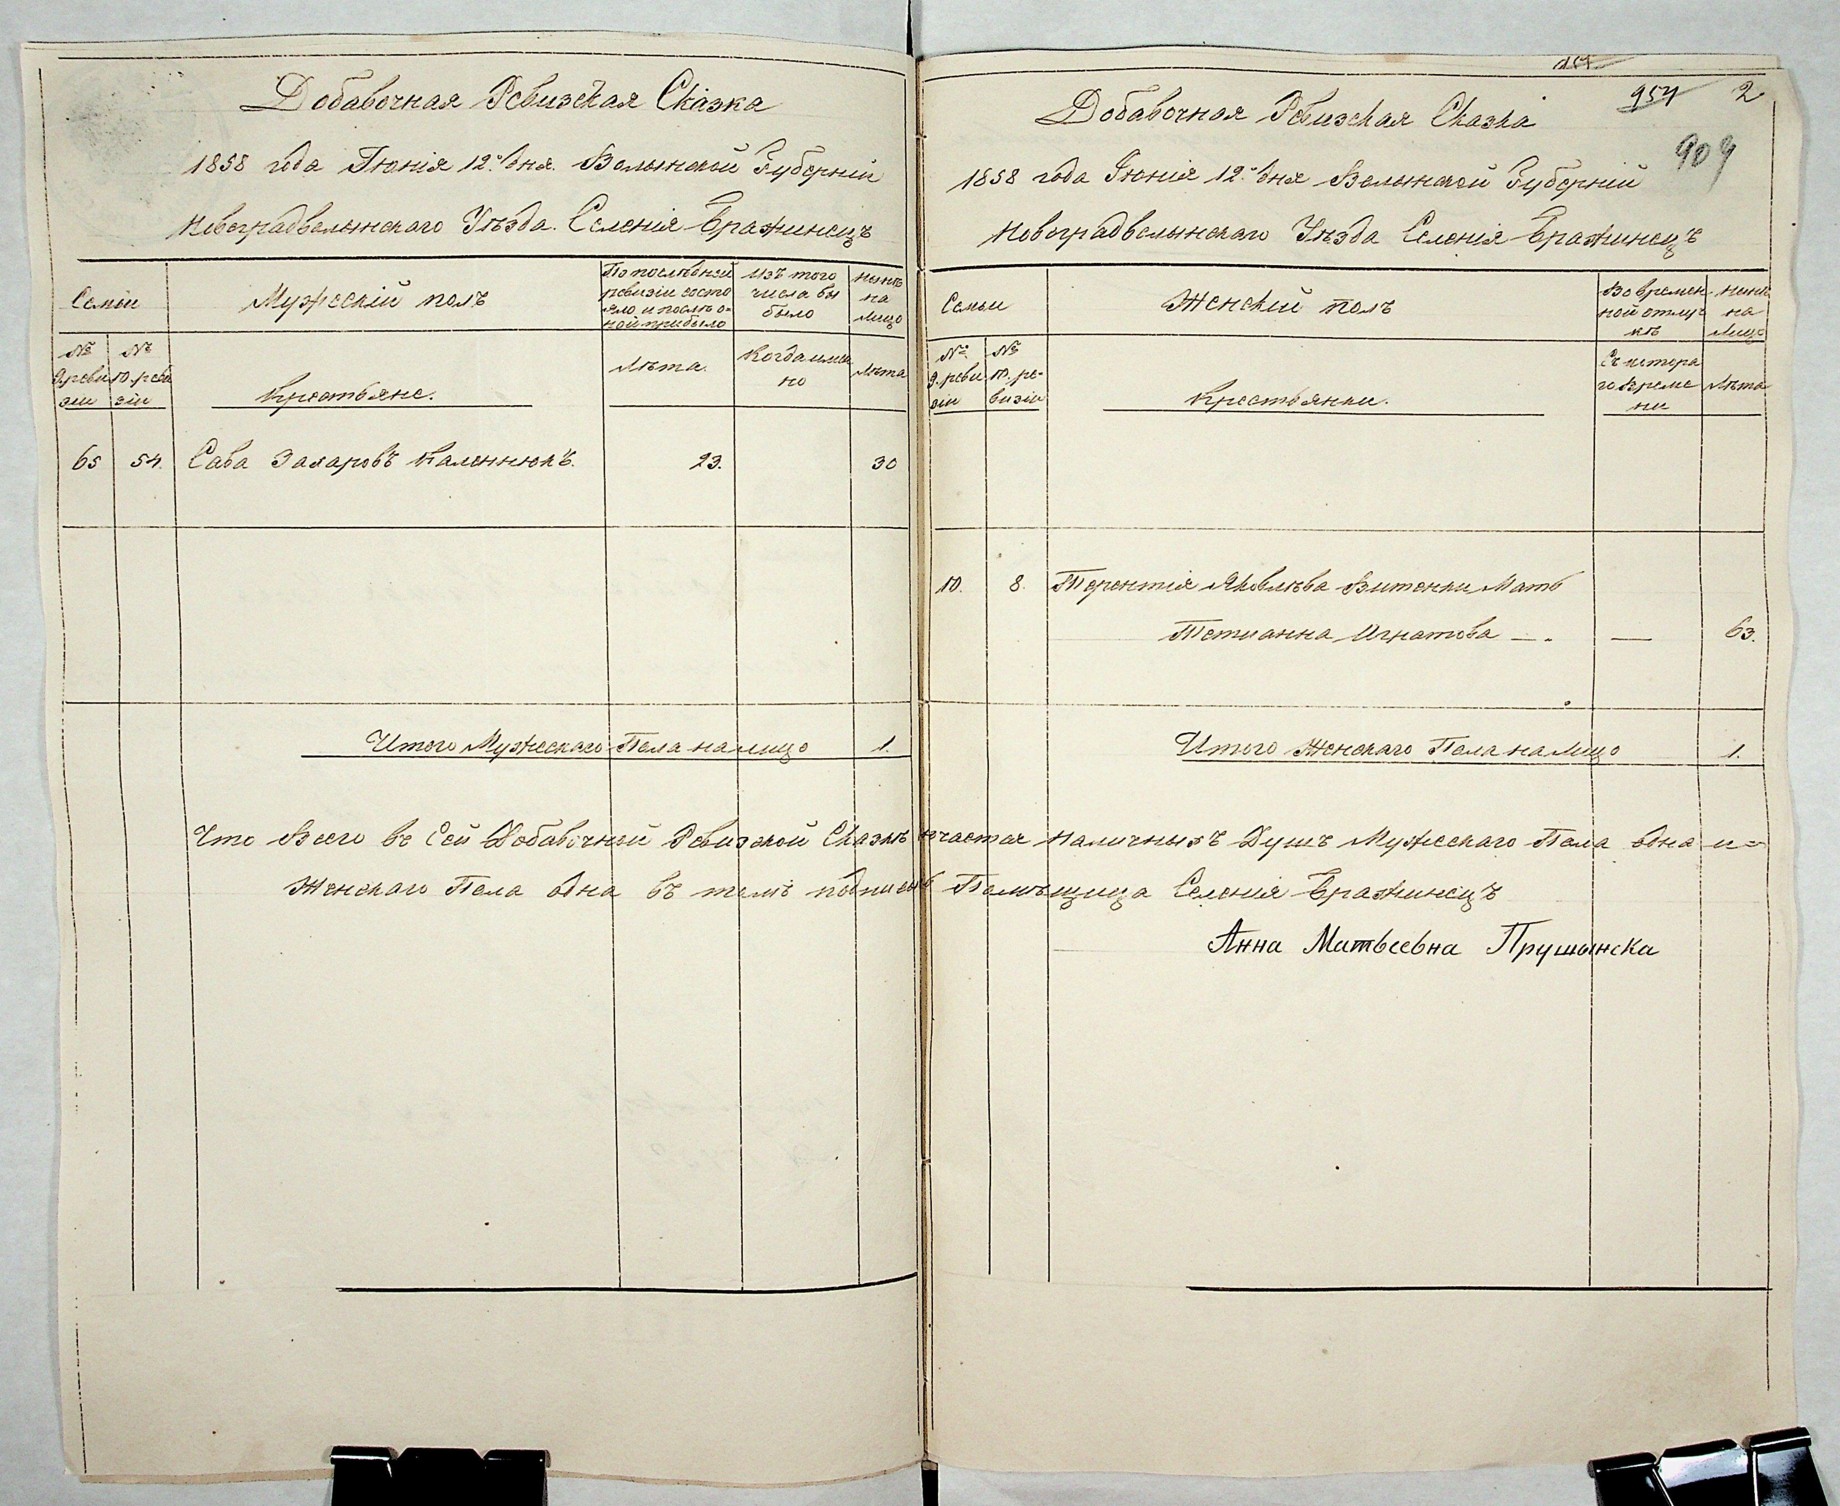 Добавочная Ревизская Сказка
1858 года Іюнія 12го дня. Волынской Губерніи
Новоградволынского Уѣзда. Селенія Бражинецъ
Семьи
Мужескій полъ
По послѣдней
ревизіи состо
яло и послѣ о-
ной прибыло
Изъ того
числа вы
было
Нынѣ
на
лицо
№
9 реви
зіи
№
10. реви
зіи
Крестьяне.
Лѣта.
Когда имен
но
Лѣта
65 54. Сава Захаровъ Каленюкъ. 23. 30
Итого Мужескаго Пола на лицо 1.
157
954 2
909
Добавочная Ревизская Сказка
1858 года Іюнія 12го дня Волынской Губерніи
Новоградволынского Уѣзда Селенія Бражинецъ
Семьи
Женскій полъ
Во времен
ной отлуч
кѣ
Нынѣ
на
Лицо
№
9. реви
зіи
№
10. ре-
визіи
Крестьянки.
Съ котора
го време
ни
Лѣта
10. 8. Терентія Яковлѣва Витенки Мать
Тетианна Игнатова — . — 63.
Итого Женскаго Пола на Лицо 1.
Что Всего въ Сей Добавочной Ревизской Сказкѣ наличныхъ Душъ Мужескаго Пола одна и=
Женскаго Пола одна въ томъ подписью Помѣщица Селенія Бражинецъ
Анна Матвеевна Прушынска